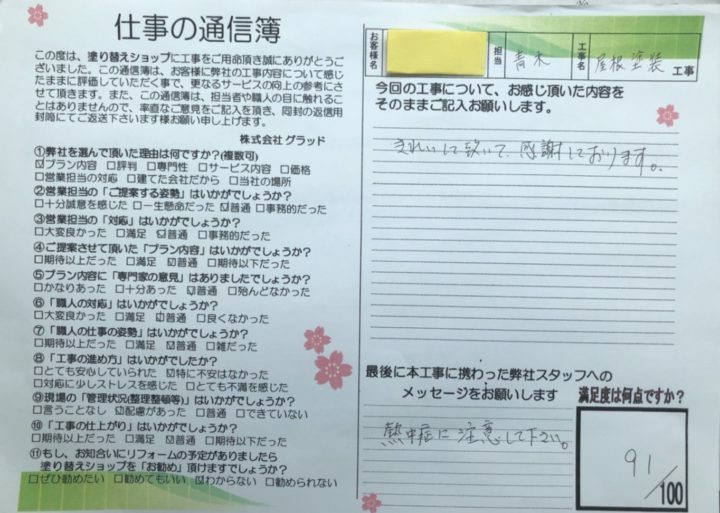 仕事の通信簿
この度は、塗り替えショップに工事をご用命頂き誠にありがとうご
ざいました。この通信簿は、お客様に弊社の工事内容について感じ
たままに評価していただく事で、更なるサービスの向上の参考にさせ
て頂きます。また、この通信簿は、担当者や職人の目に触れるこ
とはありませんので、率直なご意見をご記入を頂き、同封の返信用
封筒にてご返送下さいます様お願い申し上げます。
株式会社 グラッド
①弊社を選んで頂いた理由は何ですか?(複数可)
☑プラン内容 □評判 □専門性 □サービス内容 □価格
□営業担当の対応 □建てた会社だから □当社の場所
②営業担当の「ご提案する姿勢」はいかがでしょうか?
□十分誠意を感じた □一生懸命だった ☑普通 □事務的だった
③営業担当の「対応」はいかがでしょうか?
□大変良かった □満足 ☑普通 □事務的だった
④ご提案させて頂いた「プラン内容」はいかがでしょうか?
□期待以上だった □満足 ☑普通 □期待以下だった
⑤プラン内容に「専門家の意見」はありましたでしょうか?
□かなりあった □十分あった ☑普通 □殆んどなかった
⑥「職人の対応」はいかがでしょうか?
□大変良かった □満足 ☑普通 □良くなかった
⑦「職人の仕事の姿勢」はいかがでしょうか?
□期待以上だった □満足 ☑普通 □雑だった
⑧「工事の進め方」はいかがでしたか?
□とても安心していられた ☑特に不安はなかった
□対応に少しストレスを感じた □とても不満を感じた
⑨現場の「管理状況(整理整頓等)」はいかがでしょうか?
□言うことなし ☑配慮があった □普通 □できていない
⑩「工事の仕上がり」はいかがでしょうか?
□期待以上だった □満足 ☑普通 □期待以下だった
⑪もし、お知合いにリフォームの予定がありましたら
塗り替えショップを「お勧め」頂けますでしょうか?
□ぜひ勧めたい □勧めてもいい ☑わからない □勧められない
お客様名
担当 青木
工事名 屋根塗装 工事
今回の工事について、お感じ頂いた内容を
そのままご記入お願いします。
きれいにして頂いて、感謝しております。
最後に本工事に携わった弊社スタッフへの
メッセージをお願いします
熱中症に注意して下さい。
満足度は何点ですか?
91/100